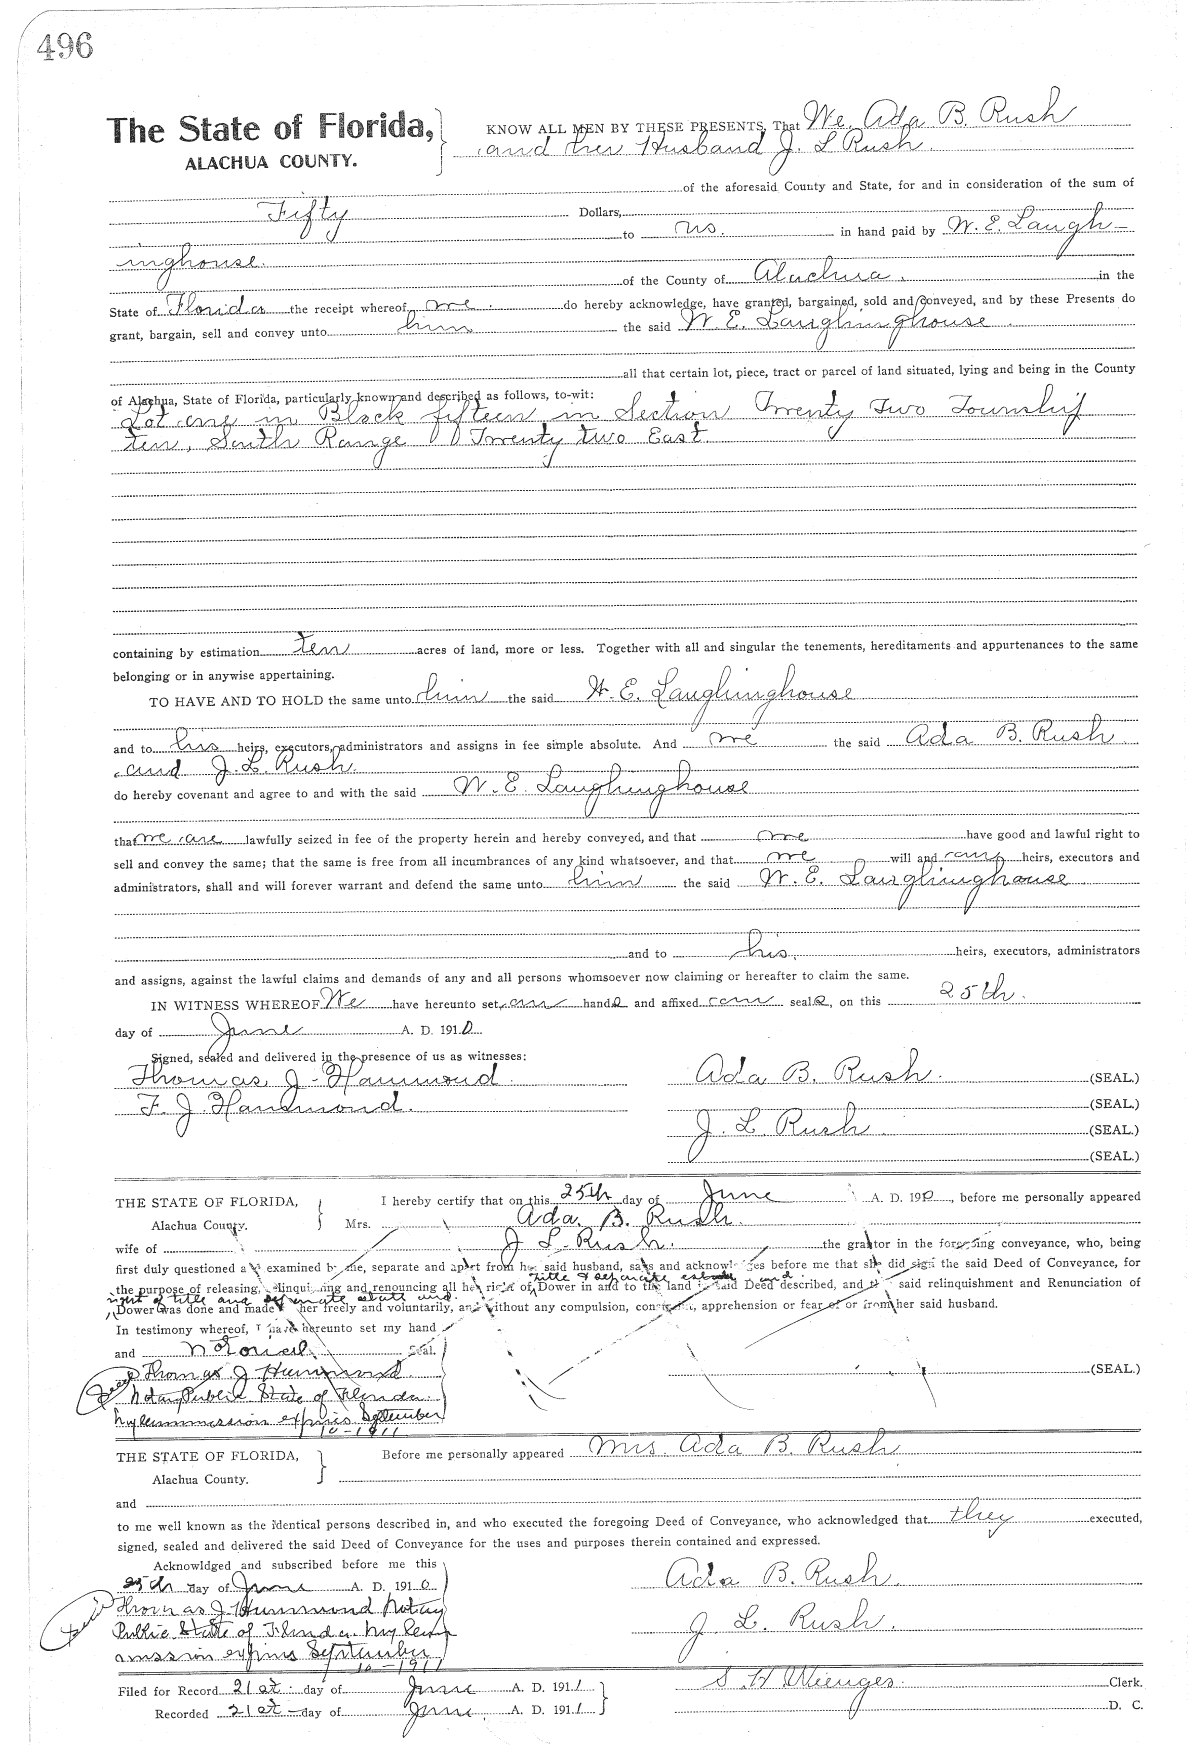 496
The State of Florida, KNOW ALL MEN BY THESE PRESENTS, That We, Ada B. Rush
ALACHUA COUNTY. and her Husband J. L Rush.
of the aforesaid County and State, for and in consideration of the sum of
Fifty Dollars,
to us. in hand paid by W. E. Laugh-
inghouse. of the County of Alachua. in the
State of Florida the receipt whereof we do hereby acknowledge, have granted, bargained, sold and conveyed, and by these Presents do
grant, bargain, sell and convey unto him the said W. E. Laughinghouse.
all that certain lot, piece, tract or parcel of land situated, lying and being in the County
of Alachua, State of Florida, particularly known and described as follows, to-wit:
Lot one in Block fifteen in Section Twenty Two Township
ten, South Range Twenty two East
containing by estimation ten acres of land, more or less. Together with all and singular the tenements, hereditaments and appurtenances to the same
belonging or in anywise appertaining.
TO HAVE AND TO HOLD the same unto him the said W. E. Laughinghouse
and to his heirs, executors, administrators and assigns in fee simple absolute. And we the said Ada B. Rush
and J. L. Rush.
do hereby covenant and agree to and with the said W. E. Laughinghouse
that we are lawfully seized in fee of the property herein and hereby conveyed, and that we have good and lawful right to
sell and convey the same; that the same is free from all incumbrances of any kind whatsoever, and that we will and our heirs, executors and
administrators, shall and will forever warrant and defend the same unto him the said W. E. Laughinghouse
and to his. heirs, executors, administrators
and assigns, against the lawful claims and demands of any and all persons whomsoever now claiming or hereafter to claim the same.
IN WITNESS WHEREOF We have hereunto set our hands and affixed our seals, on this 25th.
day of June A. D. 1910
Signed, sealed and delivered in the presence of us as witnesses:
Thomas J. Hammond. Ada B. Rush. (SEAL.)
F. J. Hammond. (SEAL.)
J. L. Rush (SEAL.)
(SEAL.)
THE STATE OF FLORIDA, I hereby certify that on this 25th day of June A. D. 190, before me personally appeared
Alachua County. Mrs. Ada. B. Rush.
wife of J L. Rush. the grantor in the foregoing conveyance, who, being
first duly questioned and examined by me, separate and apart from her said husband, says and acknowledges before me that she did sign the said Deed of Conveyance, for
title & separate estate and
the purpose of releasing, relinquishing and renouncing all her right of Dower in and to the land in said Deed described, and that said relinquishment and Renunciation of
right of title and separate estate and
Dower was done and made by her freely and voluntarily, and without any compulsion, constraint, apprehension or fear of or from her said husband.
In testimony whereof, I have hereunto set my hand
and notorial Seal.
Thomas J Hammond. (SEAL.)
Notary Public State of Florida.
My commission expires September
10-1911
THE STATE OF FLORIDA, Before me personally appeared Mrs. Ada B. Rush
Alachua County.
and
to me well known as the identical persons described in, and who executed the foregoing Deed of Conveyance, who acknowledged that they executed,
signed, sealed and delivered the said Deed of Conveyance for the uses and purposes therein contained and expressed.
Acknowldged and subscribed before me this
25th day of June A. D. 1910 Ada B. Rush.
Thomas J Hammond Notary
Public State of Florida. My com J. L. Rush.
mission expires September
10-1911
Filed for Record 21st day of June A. D. 1911 S. H Wienges. Clerk.
Recorded 21st day of June. A. D. 1911 D. C.